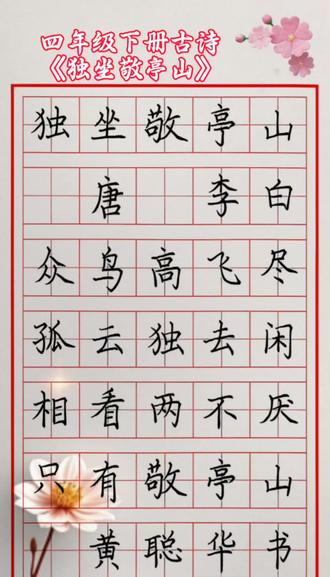 四年级下册古诗
《独坐敬亭山》
独坐敬亭山
唐 李白
众鸟高飞尽
孤云独去闲
相看两不厌
只有敬亭山
黄聪华书